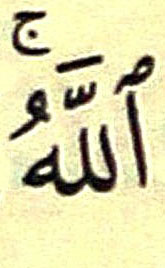 ٱللَّهُۚ